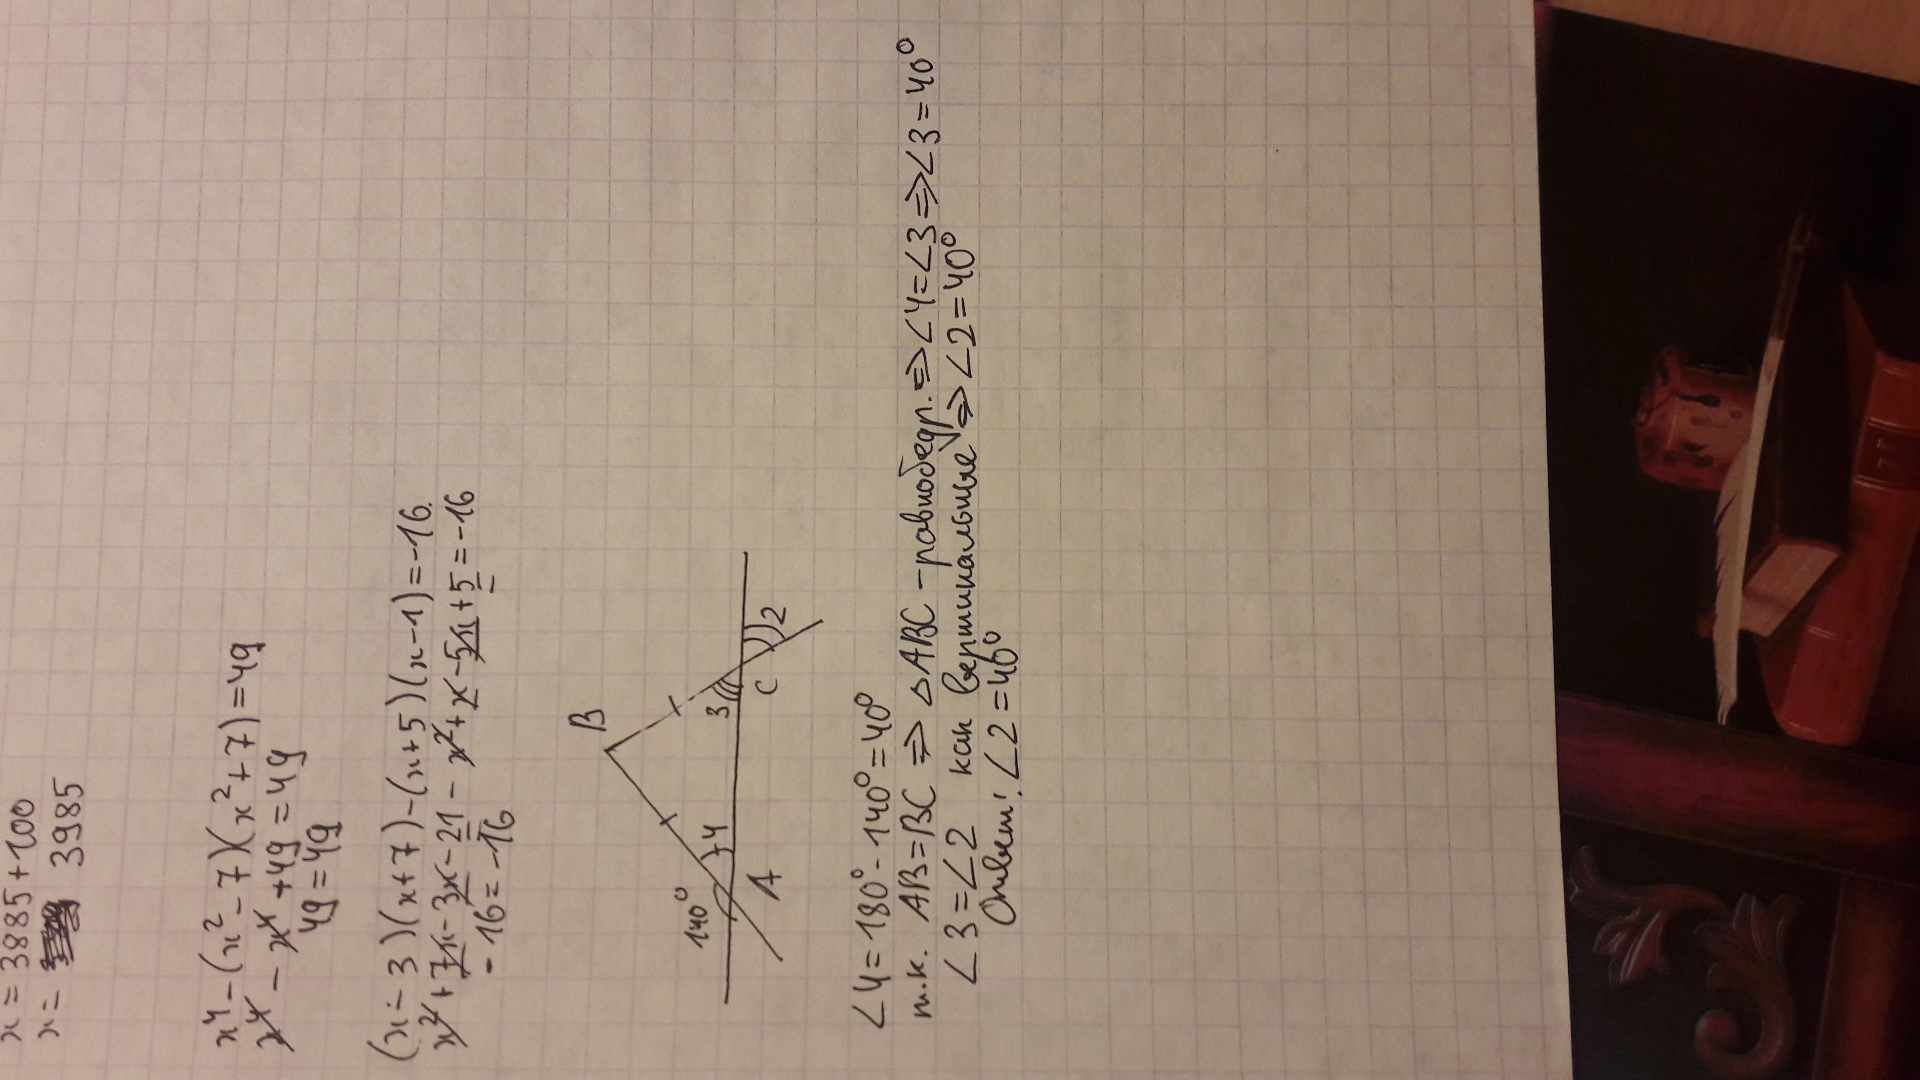 x = 3885 + 100
x = 3985
x⁴ - (x² - 7)(x² + 7) = 49
x⁴ - x⁴ + 49 = 49
49 = 49
(x - 3)(x + 7) - (x + 5)(x - 1) = -16.
x² + 7x - 3x - 21 - x² + x - 5x + 5 = -16
- 16 = -16
B
140°
4
3
2
A
C
∠4 = 180° - 140° = 40°
т.к. AB = BC ⇒ △ABC - равнобедр. ⇒ ∠4 = ∠3 ⇒ ∠3 = 40°
∠3 = ∠2 как вертикальные ⇒ ∠2 = 40°
Ответ: ∠2 = 40°